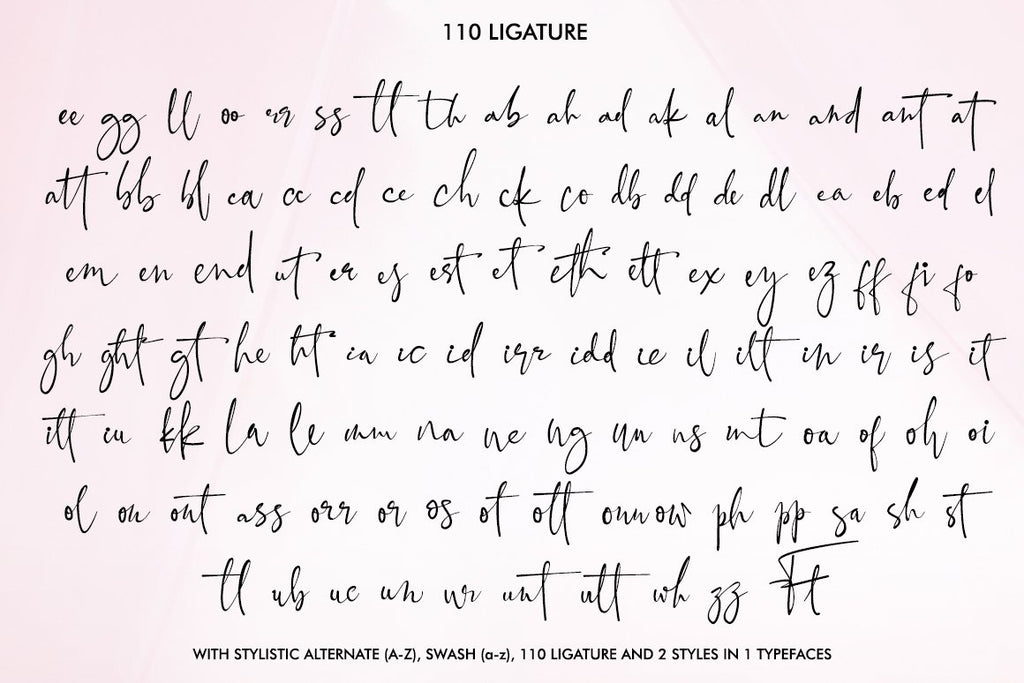 110 LIGATURE
ee gg ll oo rr ss tt th ab ah ad ak al an and ant at
att bb bl ca cc cd ce ch ck co db dd de dl ea eb ed el
em en end nt er es est et eth ett ex ey ez ff fi fo
gh ght gt he ht ia ic id irr idd ie il ilt in ir is it
itt iu kk la le mm na ne ng nn ns nt oa of oh oi
ol on ont ass orr or os ot ott ow ph pp sa sh st
tl ub uc un ur unt utt wh zz Ft
WITH STYLISTIC ALTERNATE (A-Z), SWASH (a-z), 110 LIGATURE AND 2 STYLES IN 1 TYPEFACES